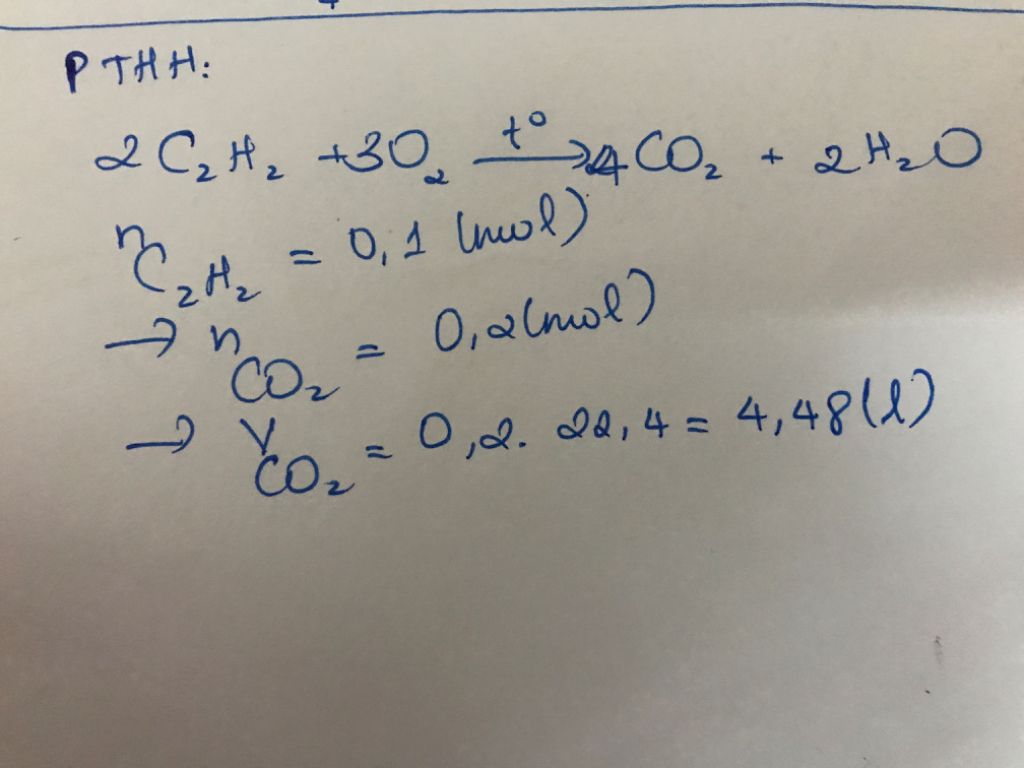 PTHH:
2C₂H₂ + 3O₂ —t°→ 4CO₂ + 2H₂O
n C₂H₂ = 0,1 (mol)
→ n CO₂ = 0,2 (mol)
→ V CO₂ = 0,2. 22,4 = 4,48 (l)